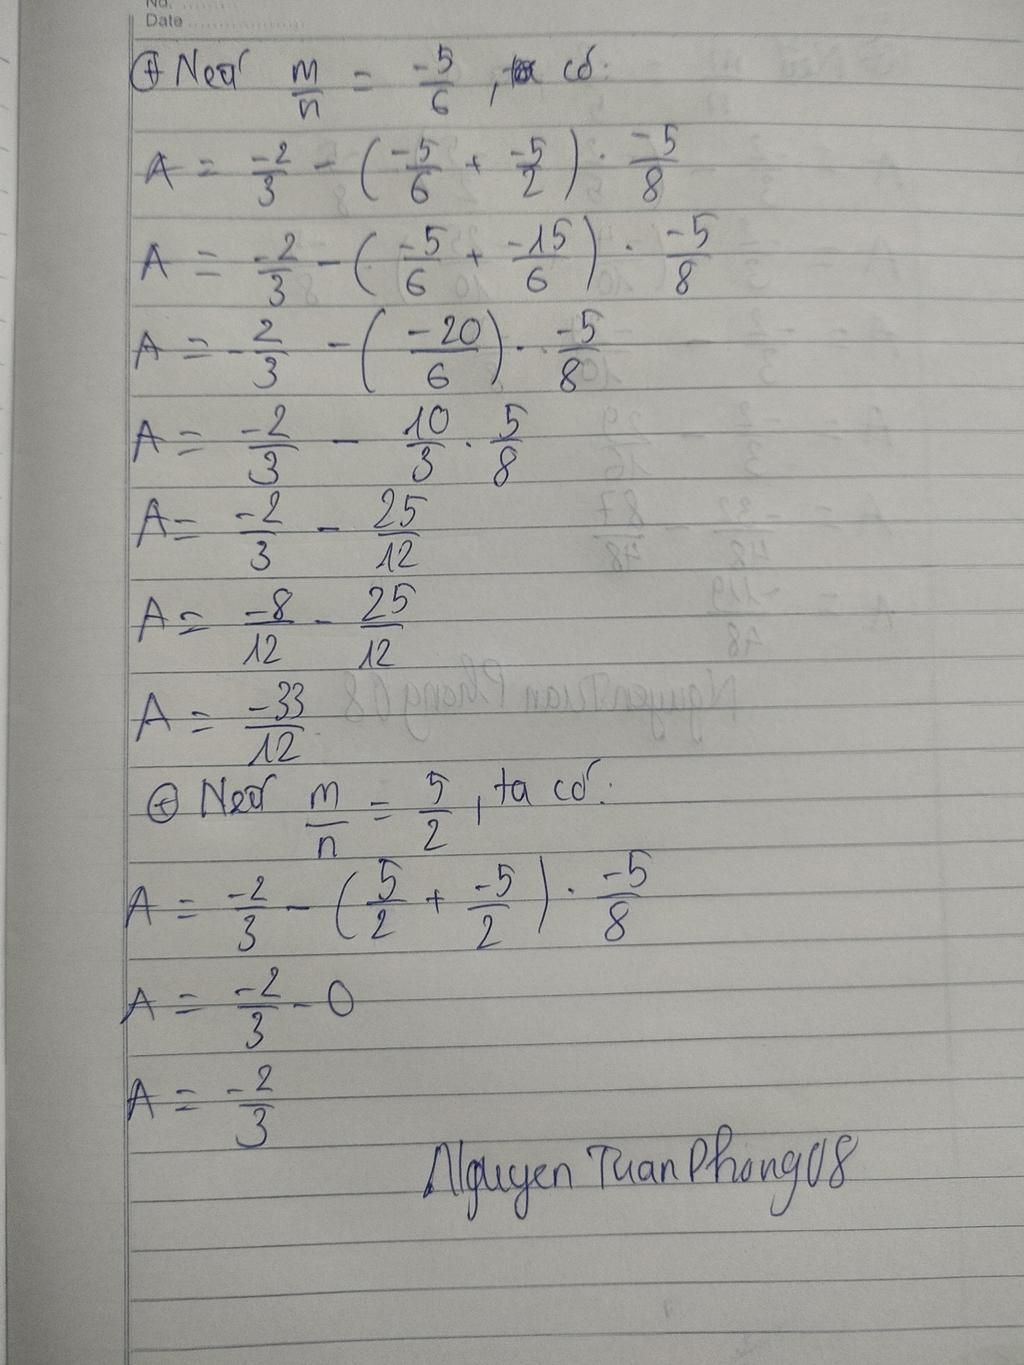 No. ........
Date ....................
⊕ Nếu m/n = -5/6 , ta có:
A = -2/3 - (-5/6 + -5/2) . -5/8
A = -2/3 - (-5/6 + -15/6) . -5/8
A = -2/3 - (-20/6) . -5/8
A = -2/3 - 10/3 . 5/8
A = -2/3 - 25/12
A = -8/12 - 25/12
A = -33/12
⊕ Nếu m/n = 5/2 , ta có:
A = -2/3 - (5/2 + -5/2) . -5/8
A = -2/3 - 0
A = -2/3
NguyenTuanPhong08